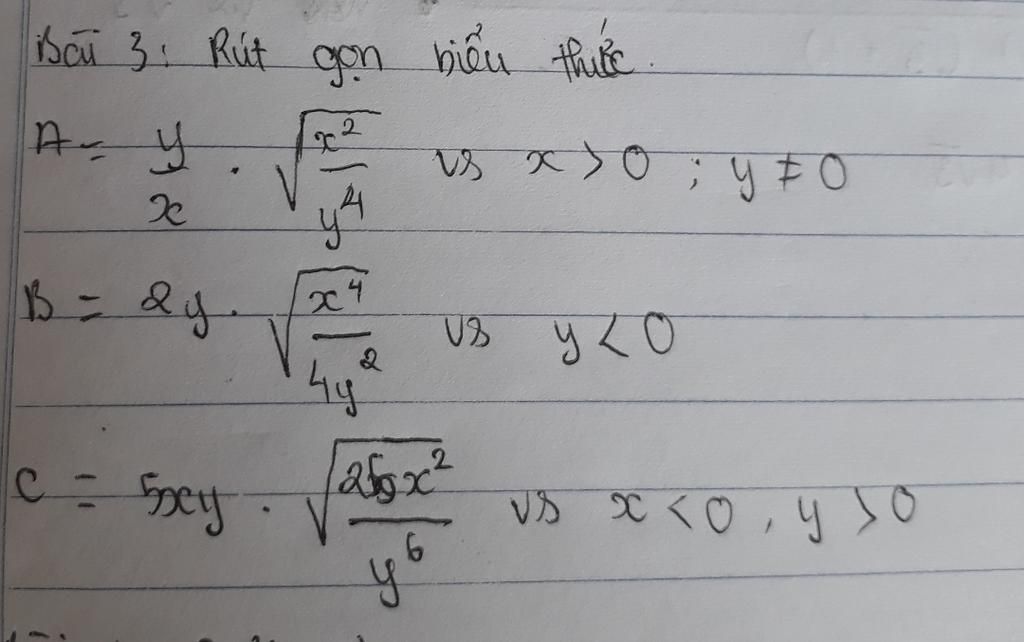 Bài 3: Rút gọn biểu thức.
A = y/x . √(x²/y⁴) vs x > 0 ; y ≠ 0
B = 2y . √(x⁴/4y²) vs y < 0
C = 5xy . √(25x²/y⁶) vs x < 0 , y > 0